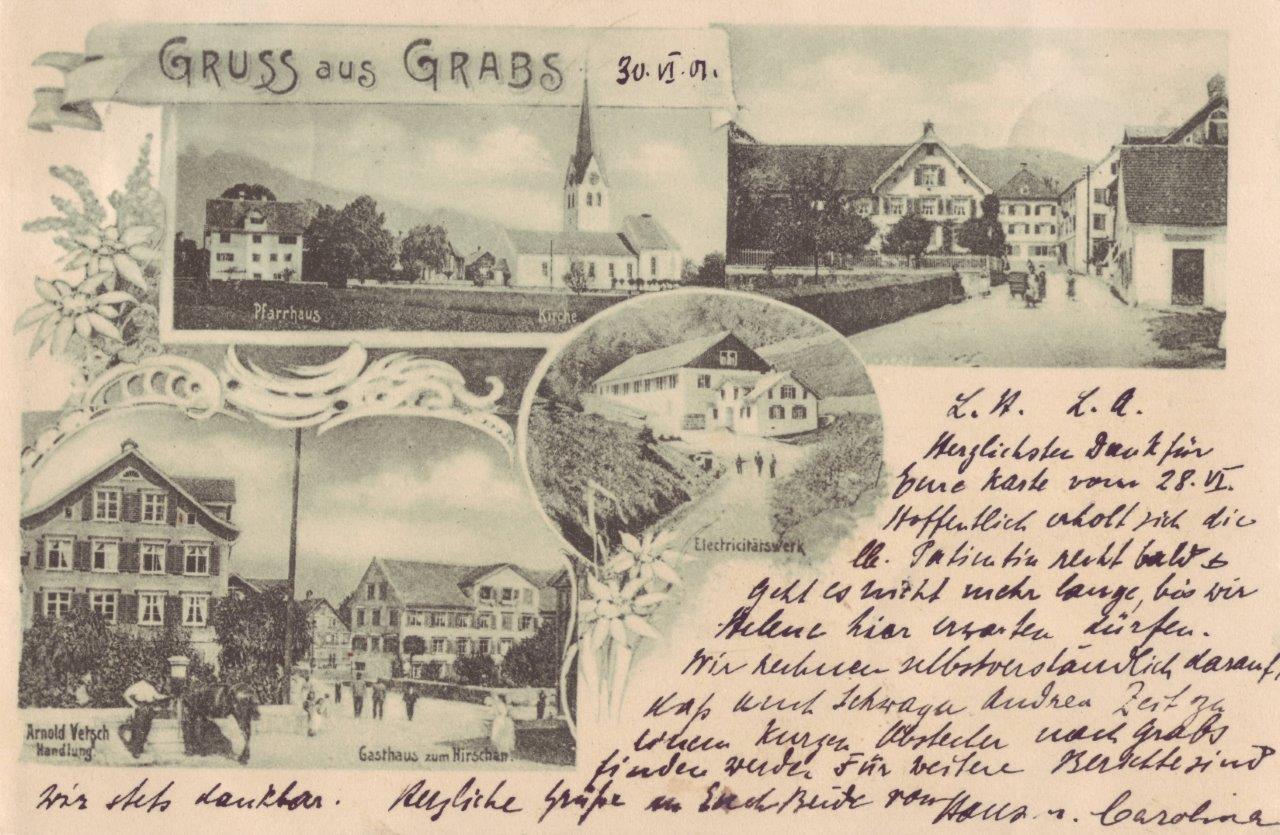 GRUSS aus GRABS
30. VI. 01.
Pfarrhaus
Kirche
Electricitätswerk
Arnold Vetsch
Handlung
Gasthaus zum Hirschen.
L. H. L. A.
Herzlichsten Dank für
Eure Karte vom 28. VI.
Hoffentlich erholt sich die
lb. Patientin recht bald &
geht es nicht mehr lange, bis wir
Helene hier erwarten dürfen.
Wir rechnen selbstverständlich darauf,
daß auch Schwager Andrea Zeit zu
einem kurzen Abstecher nach Grabs
finden werde. Für weitere Berichte sind
wir stets dankbar. Herzliche Grüße an Euch Beide von Hans u. Carolina